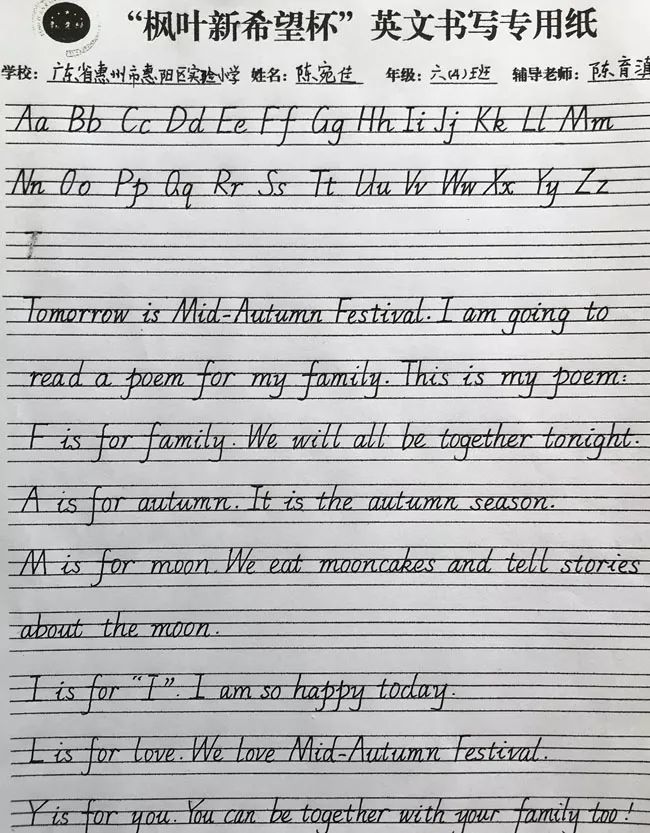 “枫叶新希望杯”英文书写专用纸
学校：广东省惠州市惠阳区实验小学 姓名：陈宛佳 年级：六(4)班 辅导老师：陈育
Aa Bb Cc Dd Ee Ff Gg Hh Ii Jj Kk Ll Mm
Nn Oo Pp Qq Rr Ss Tt Uu Vv Ww Xx Yy Zz
T
Tomorrow is Mid-Autumn Festival. I am going to
read a poem for my family. This is my poem:
F is for family. We will all be together tonight.
A is for autumn. It is the autumn season.
M is for moon. We eat mooncakes and tell stories
about the moon.
I is for “I”. I am so happy today.
L is for love. We love Mid-Autumn Festival.
Y is for you. You can be together with your family too!